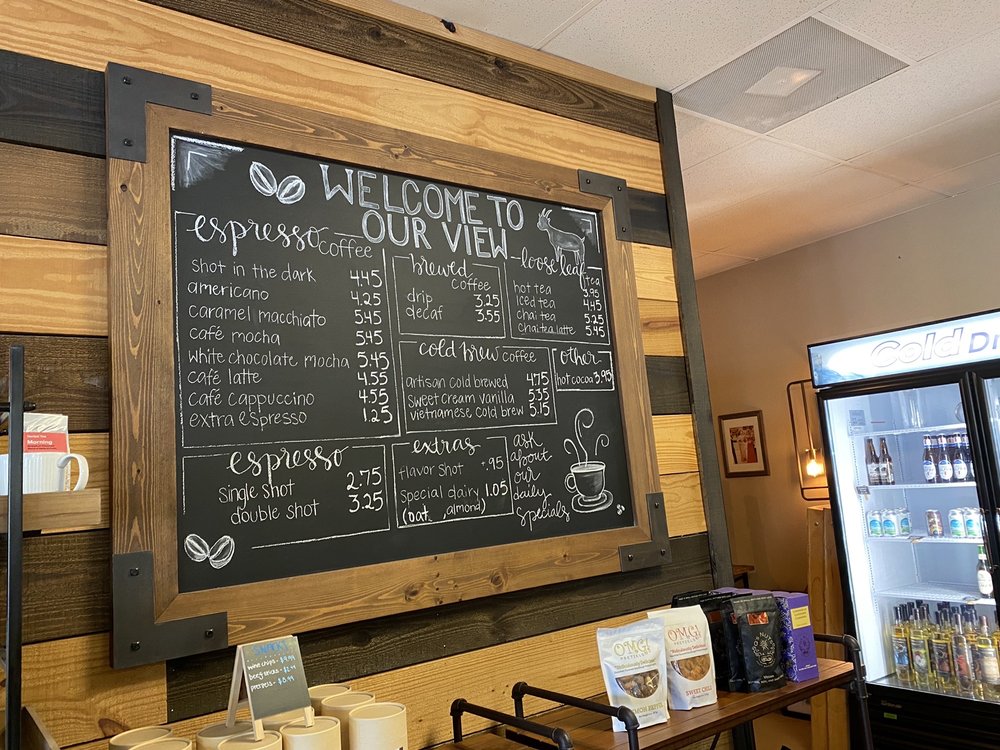 WELCOME TO
OUR VIEW
espresso coffee
shot in the dark 4.45
americano 4.25
caramel macchiato 5.45
café mocha 5.45
white chocolate mocha 5.45
café latte 4.55
café cappuccino 4.55
extra espresso 1.25
brewed
coffee
drip 3.25
decaf 3.55
loose leaf
tea
hot tea 3.95
iced tea 4.45
chai tea 5.25
chai tea latte 5.45
cold brew coffee
artisan cold brewed 4.75
sweet cream vanilla 5.35
vietnamese cold brew 5.15
other
hot cocoa 3.95
espresso
single shot 2.75
double shot 3.25
extras
flavor shot .95
special dairy 1.05
(oat, almond)
ask
about
our
daily
specials
Cold Dr
Morning
wine chips
beef sticks
pretzels
O.M.G!
PRETZELS
"Ridiculously Delicious"
O.M.G!
PRETZELS
"Ridiculously Delicious"
SWEET CHILI